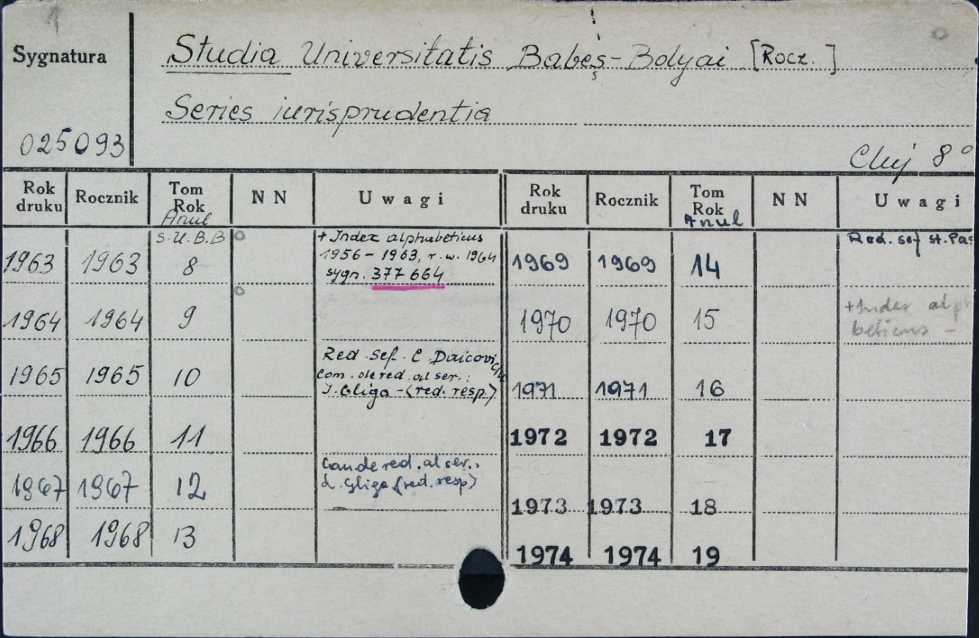 1
Sygnatura
Studia Universitatis Babeş-Bolyai [Rocz.]
Series iurisprudentia
025093
Cluj 8°
Rok druku Rocznik Tom Rok Anul N N Uwagi Rok druku Rocznik Tom Rok Anul N N Uwagi
S.U.B.B
+ Index alphabeticus
1956 - 1963, r.w. 1964
sygn. 377 664
Red. sef St. Pas
1963 1963 8 1969 1969 14
1964 1964 9 1970 1970 15
+ Index alph
beticus -
Red. sef. C Daicoviciu
Com. de red. al ser.:
I. Gliga - (red. resp)
1965 1965 10 1971 1971 16
1966 1966 11 1972 1972 17
de red. al ser.:
Gliga (red. resp)
1967 1967 12 1973 1973 18
1968 1968 13 1974 1974 19